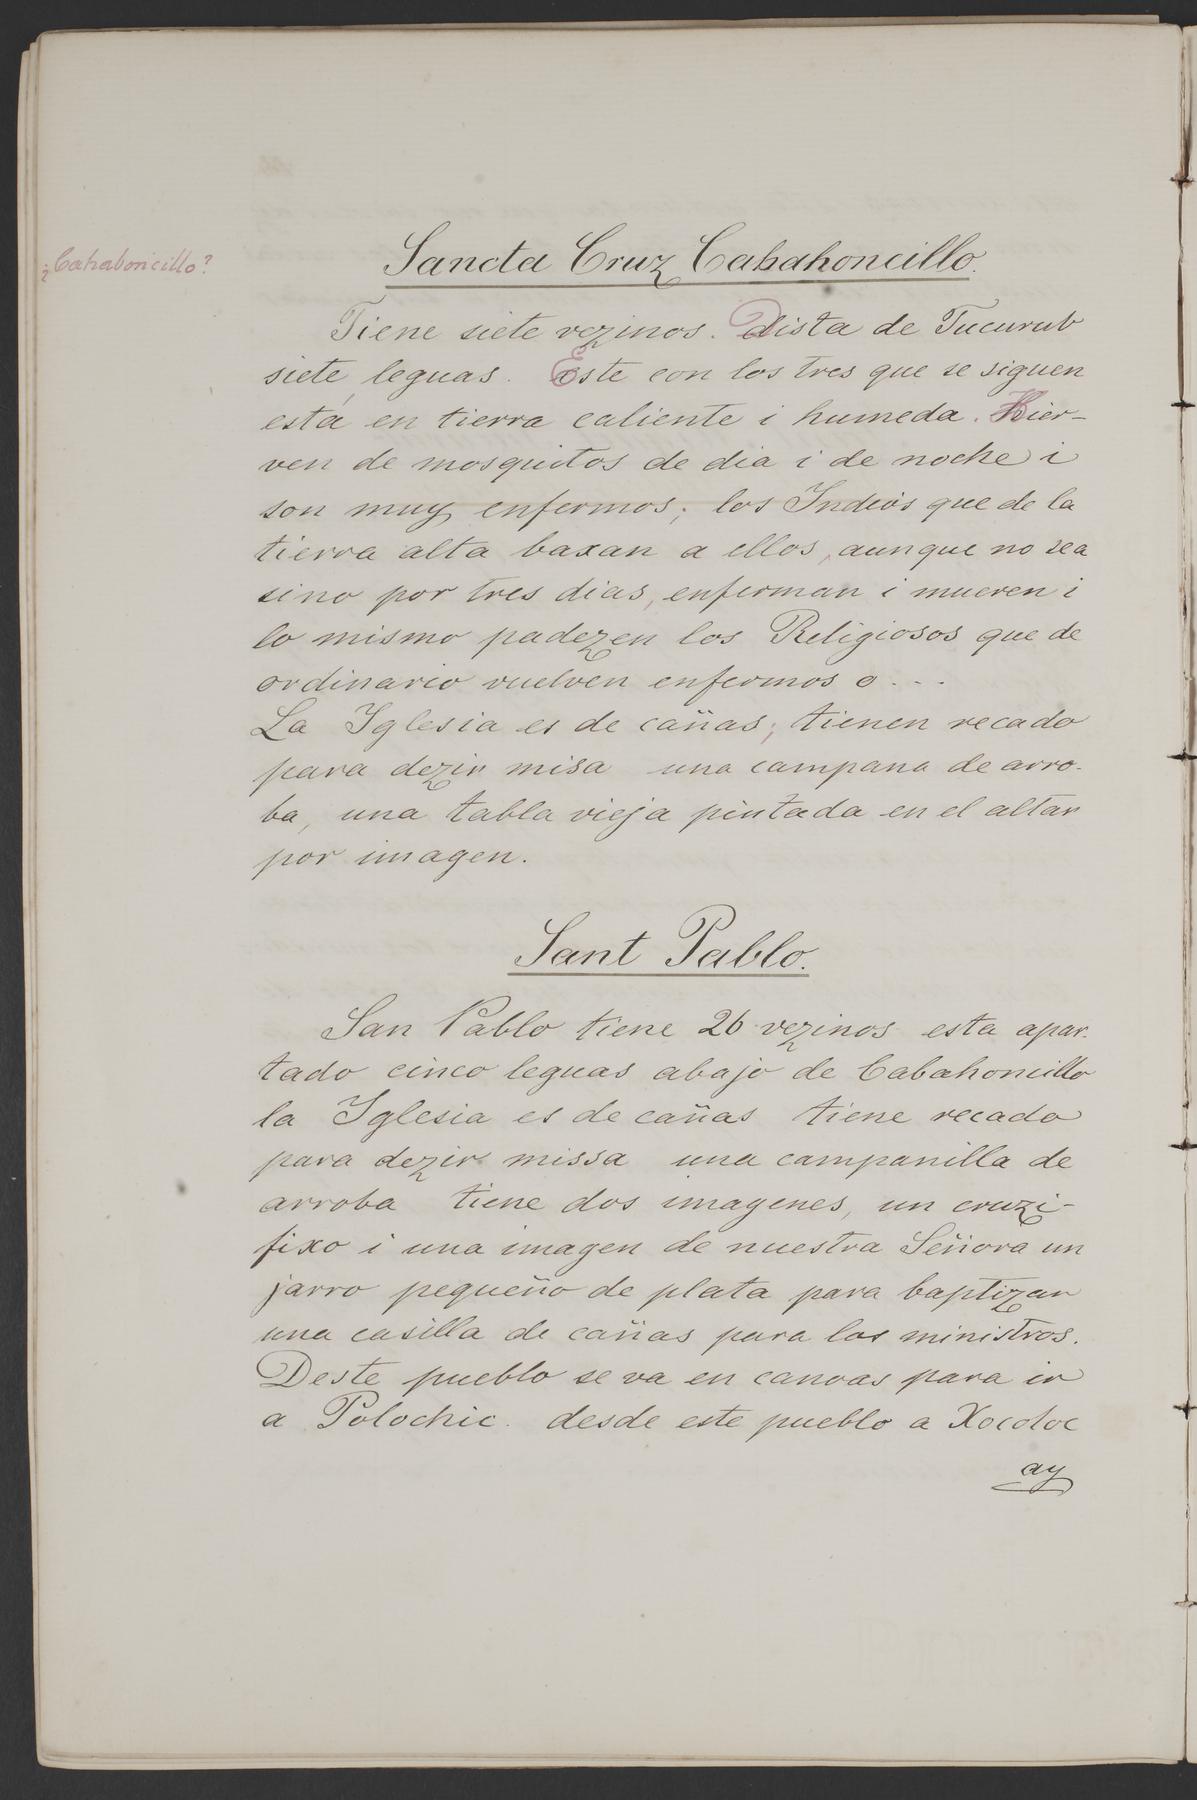 ¿Cahaboncillo?
Sancta Cruz Cabahoncillo.
Tiene siete vezinos. Dista de Tucurub
siete leguas. Este con los tres que se siguen
está en tierra caliente i humeda. Hier-
ven de mosquitos de dia i de noche i
son muy enfermos; los Indios que de la
tierra alta baxan a ellos, aunque no sea
sino por tres dias, enferman i mueren i
lo mismo padezen los Religiosos que de
ordinario vuelven enfermos o . - -
La Iglesia es de cañas; tienen recado
para dezir misa una campana de arro-
ba, una tabla vieja pintada en el altar
por imagen.
Sant Pablo.
San Pablo tiene 26 vezinos esta apar-
tado cinco leguas abajo de Cabahoncillo
la Iglesia es de cañas tiene recado
para dezir missa una campanilla de
arroba tiene dos imagenes, un cruzi-
fixo i una imagen de nuestra Señora un
jarro pequeño de plata para baptizar
una casilla de cañas para los ministros.
Deste pueblo se va en canoas para ir
a Polochic. desde este pueblo a Xocoloc
ay